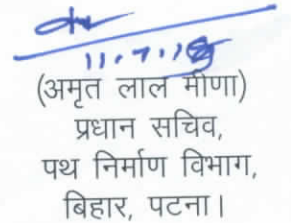 11.7.18
(अमृत लाल मीणा)
प्रधान सचिव,
पथ निर्माण विभाग,
बिहार, पटना।